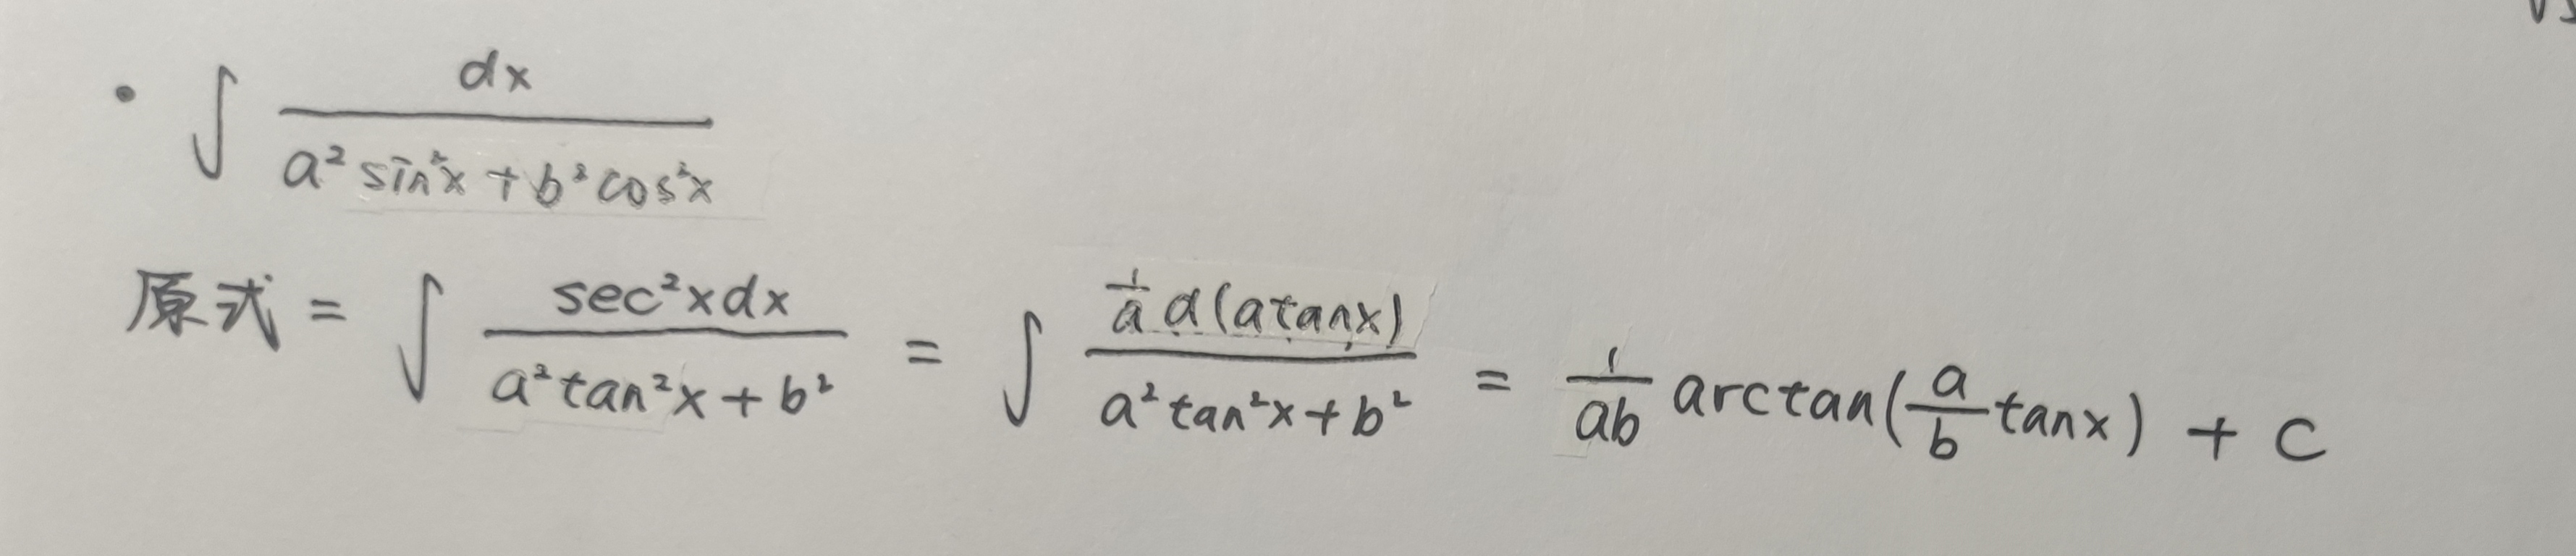 • ∫ dx / (a² sin²x + b² cos²x)
原式 = ∫ sec²x dx / (a² tan²x + b²) = ∫ (1/a) d(a tanx) / (a² tan²x + b²) = 1/(ab) arctan(a/b tanx) + C